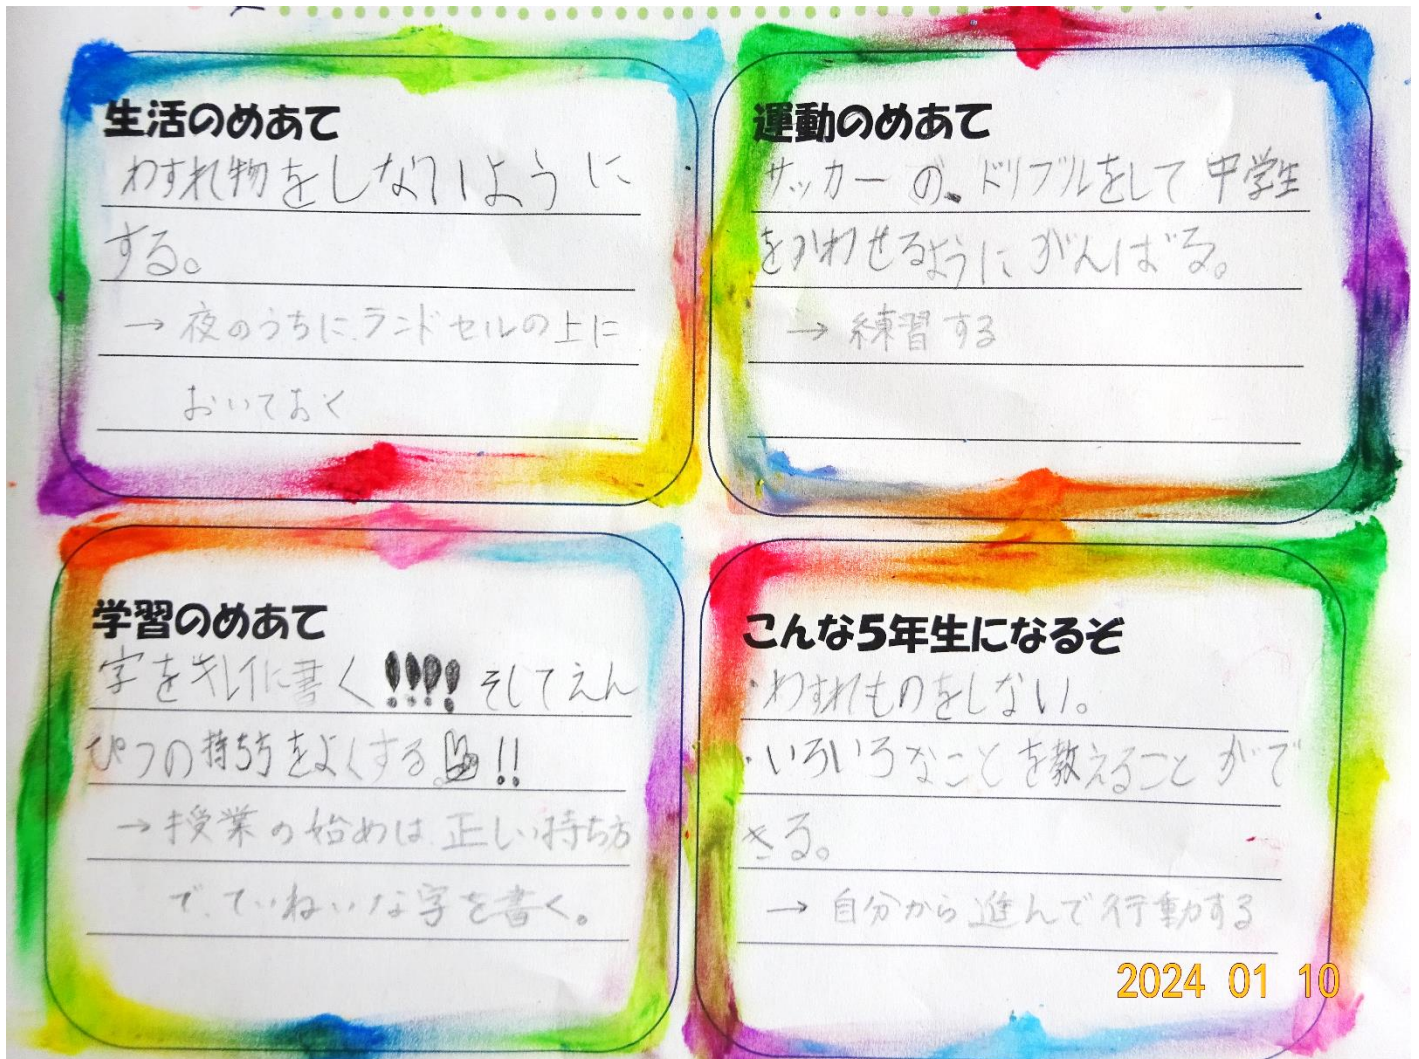 生活のめあて
わすれ物をしないように
する。
→夜のうちに、ランドセルの上に
おいておく
運動のめあて
サッカーの、ドリブルをして中学生
をかわせるようにがんばる。
→練習する
学習のめあて
字をキレイに書く!!!!そしてえん
ぴつの持ちをよくする。!!
→授業の始めは、正しい持ち方
で、ていねいな字を書く。
こんな5年生になるぞ
・わすれものをしない。
・いろいろなことを教えることがで
きる。
→自分から進んで行動する
2024 01 10